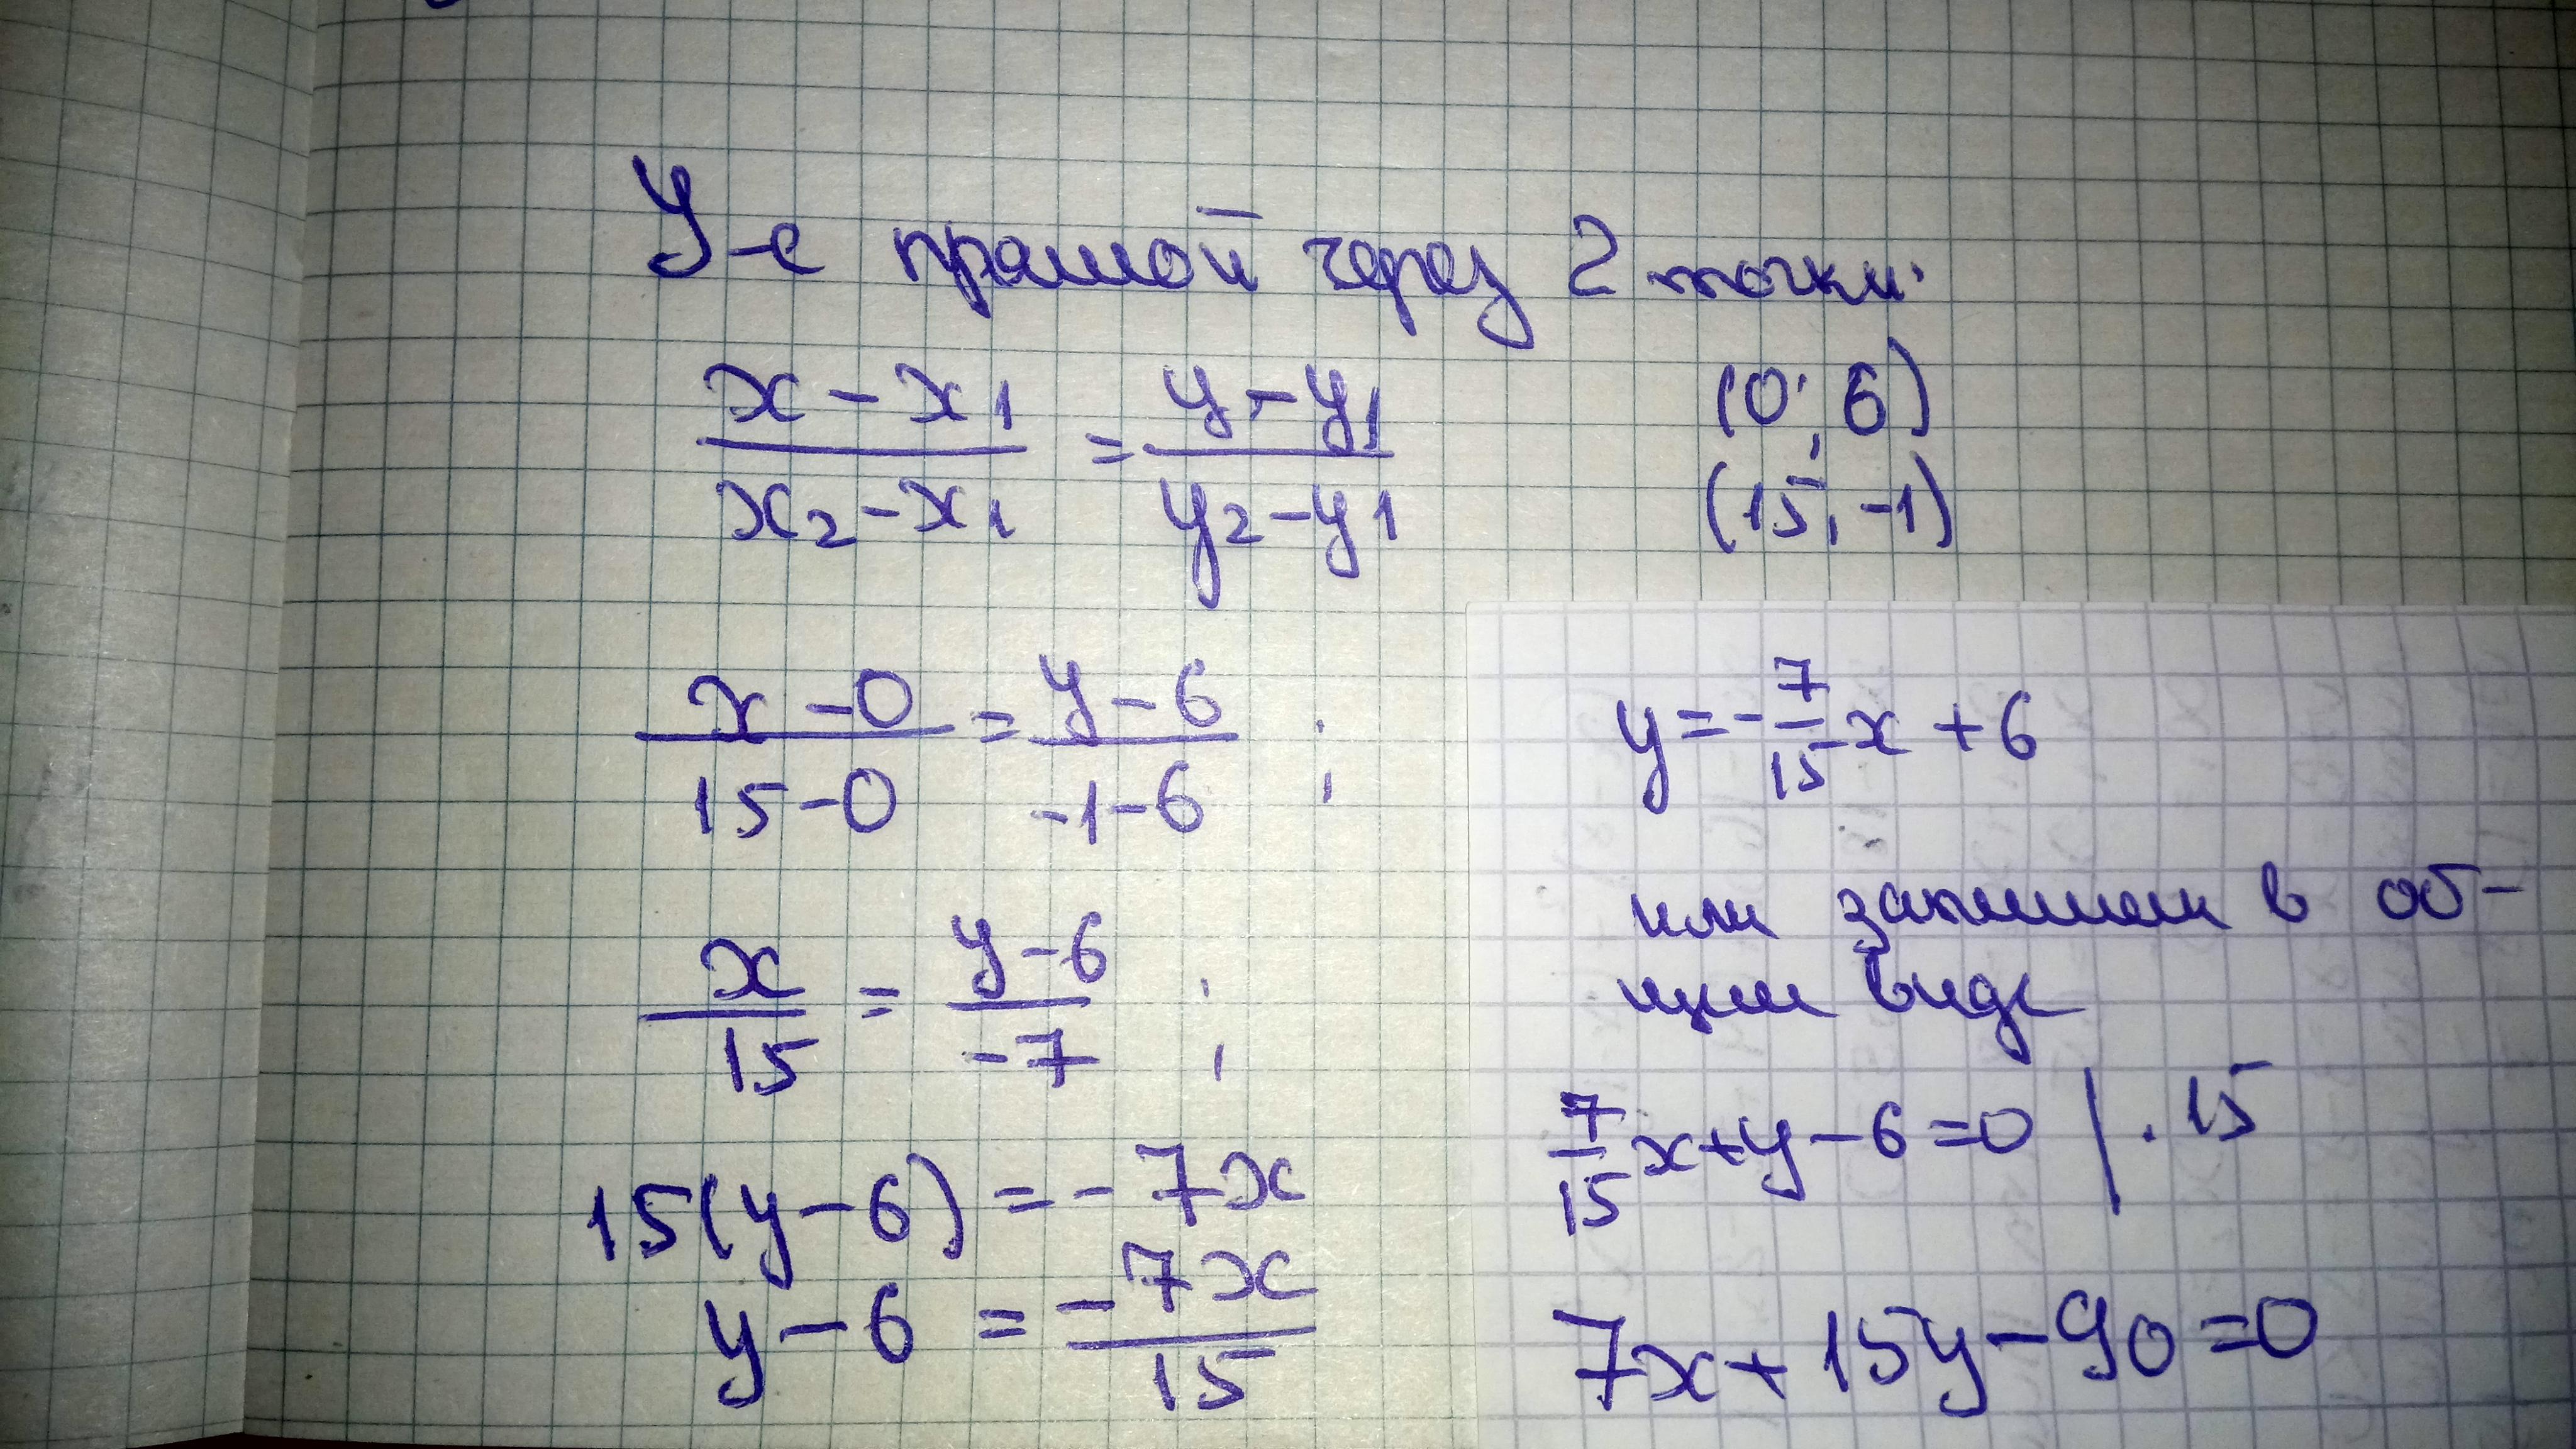 У-е прямой через 2 точки:
(x - x1)/(x2 - x1) = (y - y1)/(y2 - y1)
(0; 6)
(15; -1)
(x - 0)/(15 - 0) = (y - 6)/(-1 - 6) ;
x/15 = (y - 6)/(-7) ;
15(y - 6) = -7x
y - 6 = (-7x)/15
y = -7/15 x + 6
или запишем в об-
щем виде
7/15 x + y - 6 = 0 | · 15
7x + 15y - 90 = 0